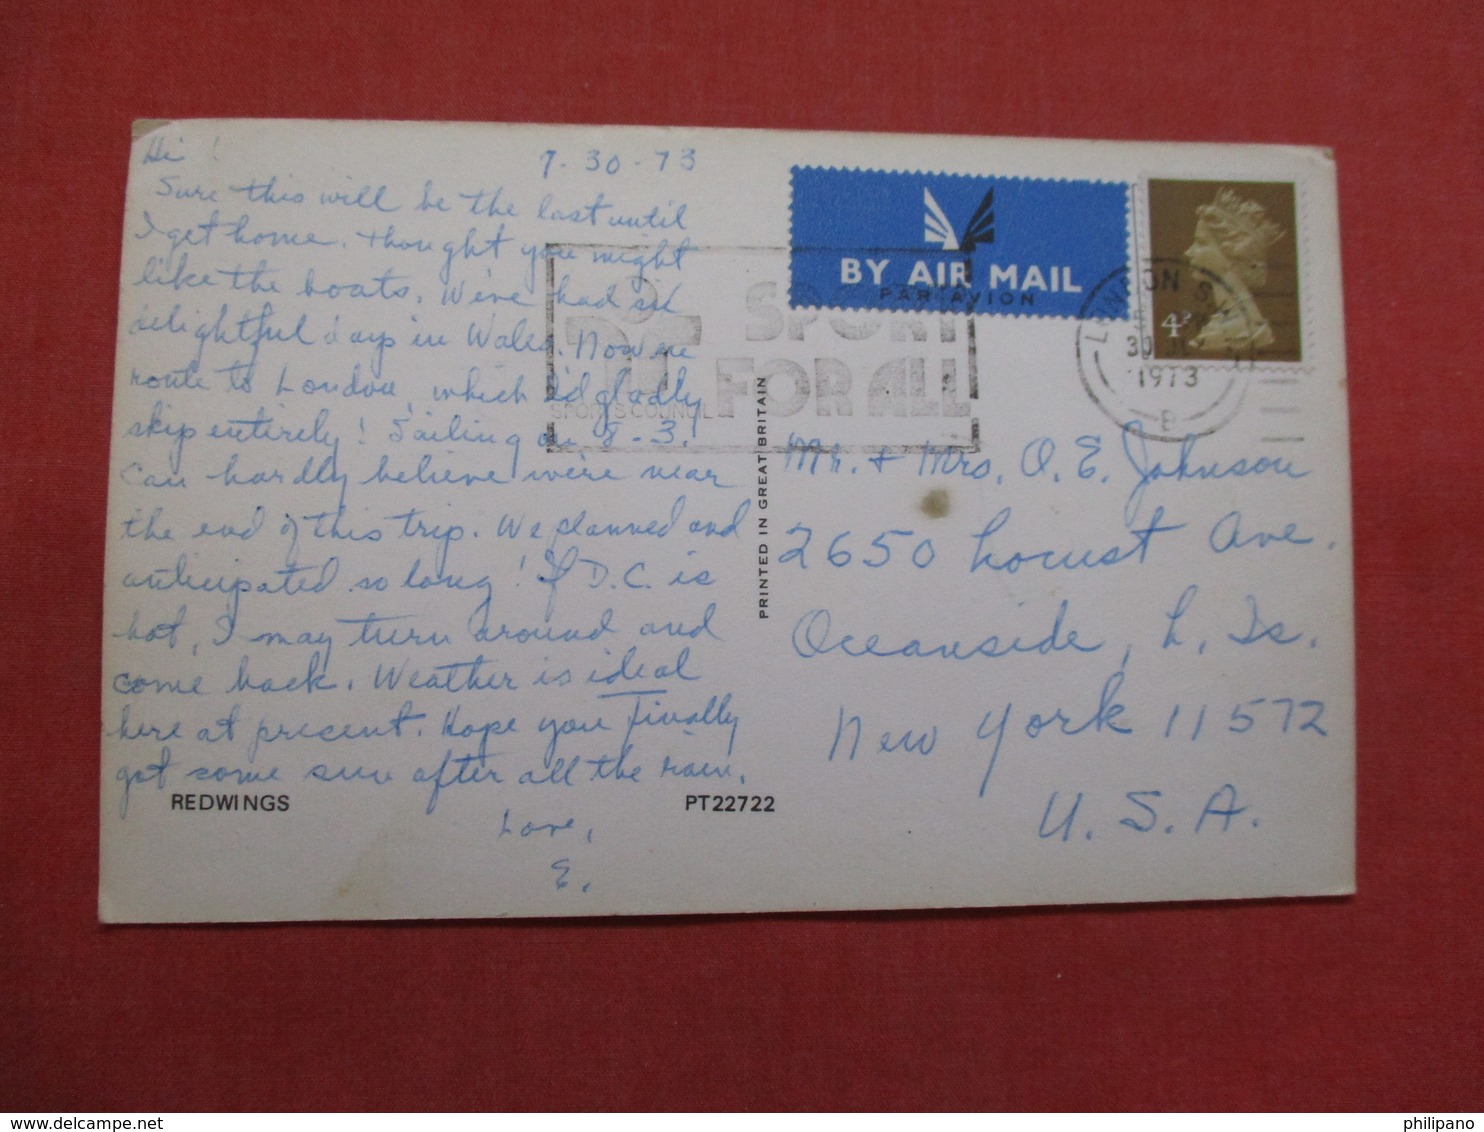 Hi!
7-30-73
Sure this will be the last until
I get home. Thought you might
like the boats. We've had six
delightful days in Wales. Now en
route to London, which I'd gladly
skip entirely! Sailing on 8-3.
Can hardly believe we're near
the end of this trip. We planned and
anticipated so long! If D.C. is
hot, I may turn around and
come back. Weather is ideal
here at present. Hope you finally
got some sun after all the rain.
Love,
E.
REDWINGS
PT22722
PRINTED IN GREAT BRITAIN
BY AIR MAIL
PAR AVION
SPORT
FOR ALL
SPORTS COUNCIL
LONDON S
30
1973
E
4P
Mr. + Mrs. O. E. Johnson
2650 Locust Ave.
Oceanside, L. Is.
New York 11572
U. S. A.
philipano